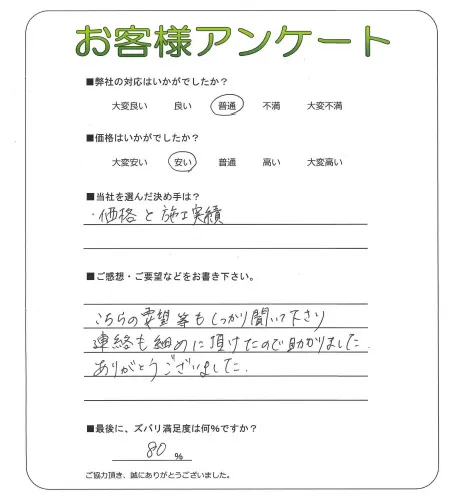 お客様アンケート
■弊社の対応はいかがでしたか？
大変良い 良い 普通 不満 大変不満
■価格はいかがでしたか？
大変安い 安い 普通 高い 大変高い
■当社を選んだ決め手は？
・価格と施工実績
■ご感想・ご要望などをお書き下さい。
こちらの要望等もしっかり聞いて下さり
連絡も細めに頂けたので助かりました.
ありがとうございました.
■最後に、ズバリ満足度は何％ですか？
80 ％
ご協力頂き、誠にありがとうございました。